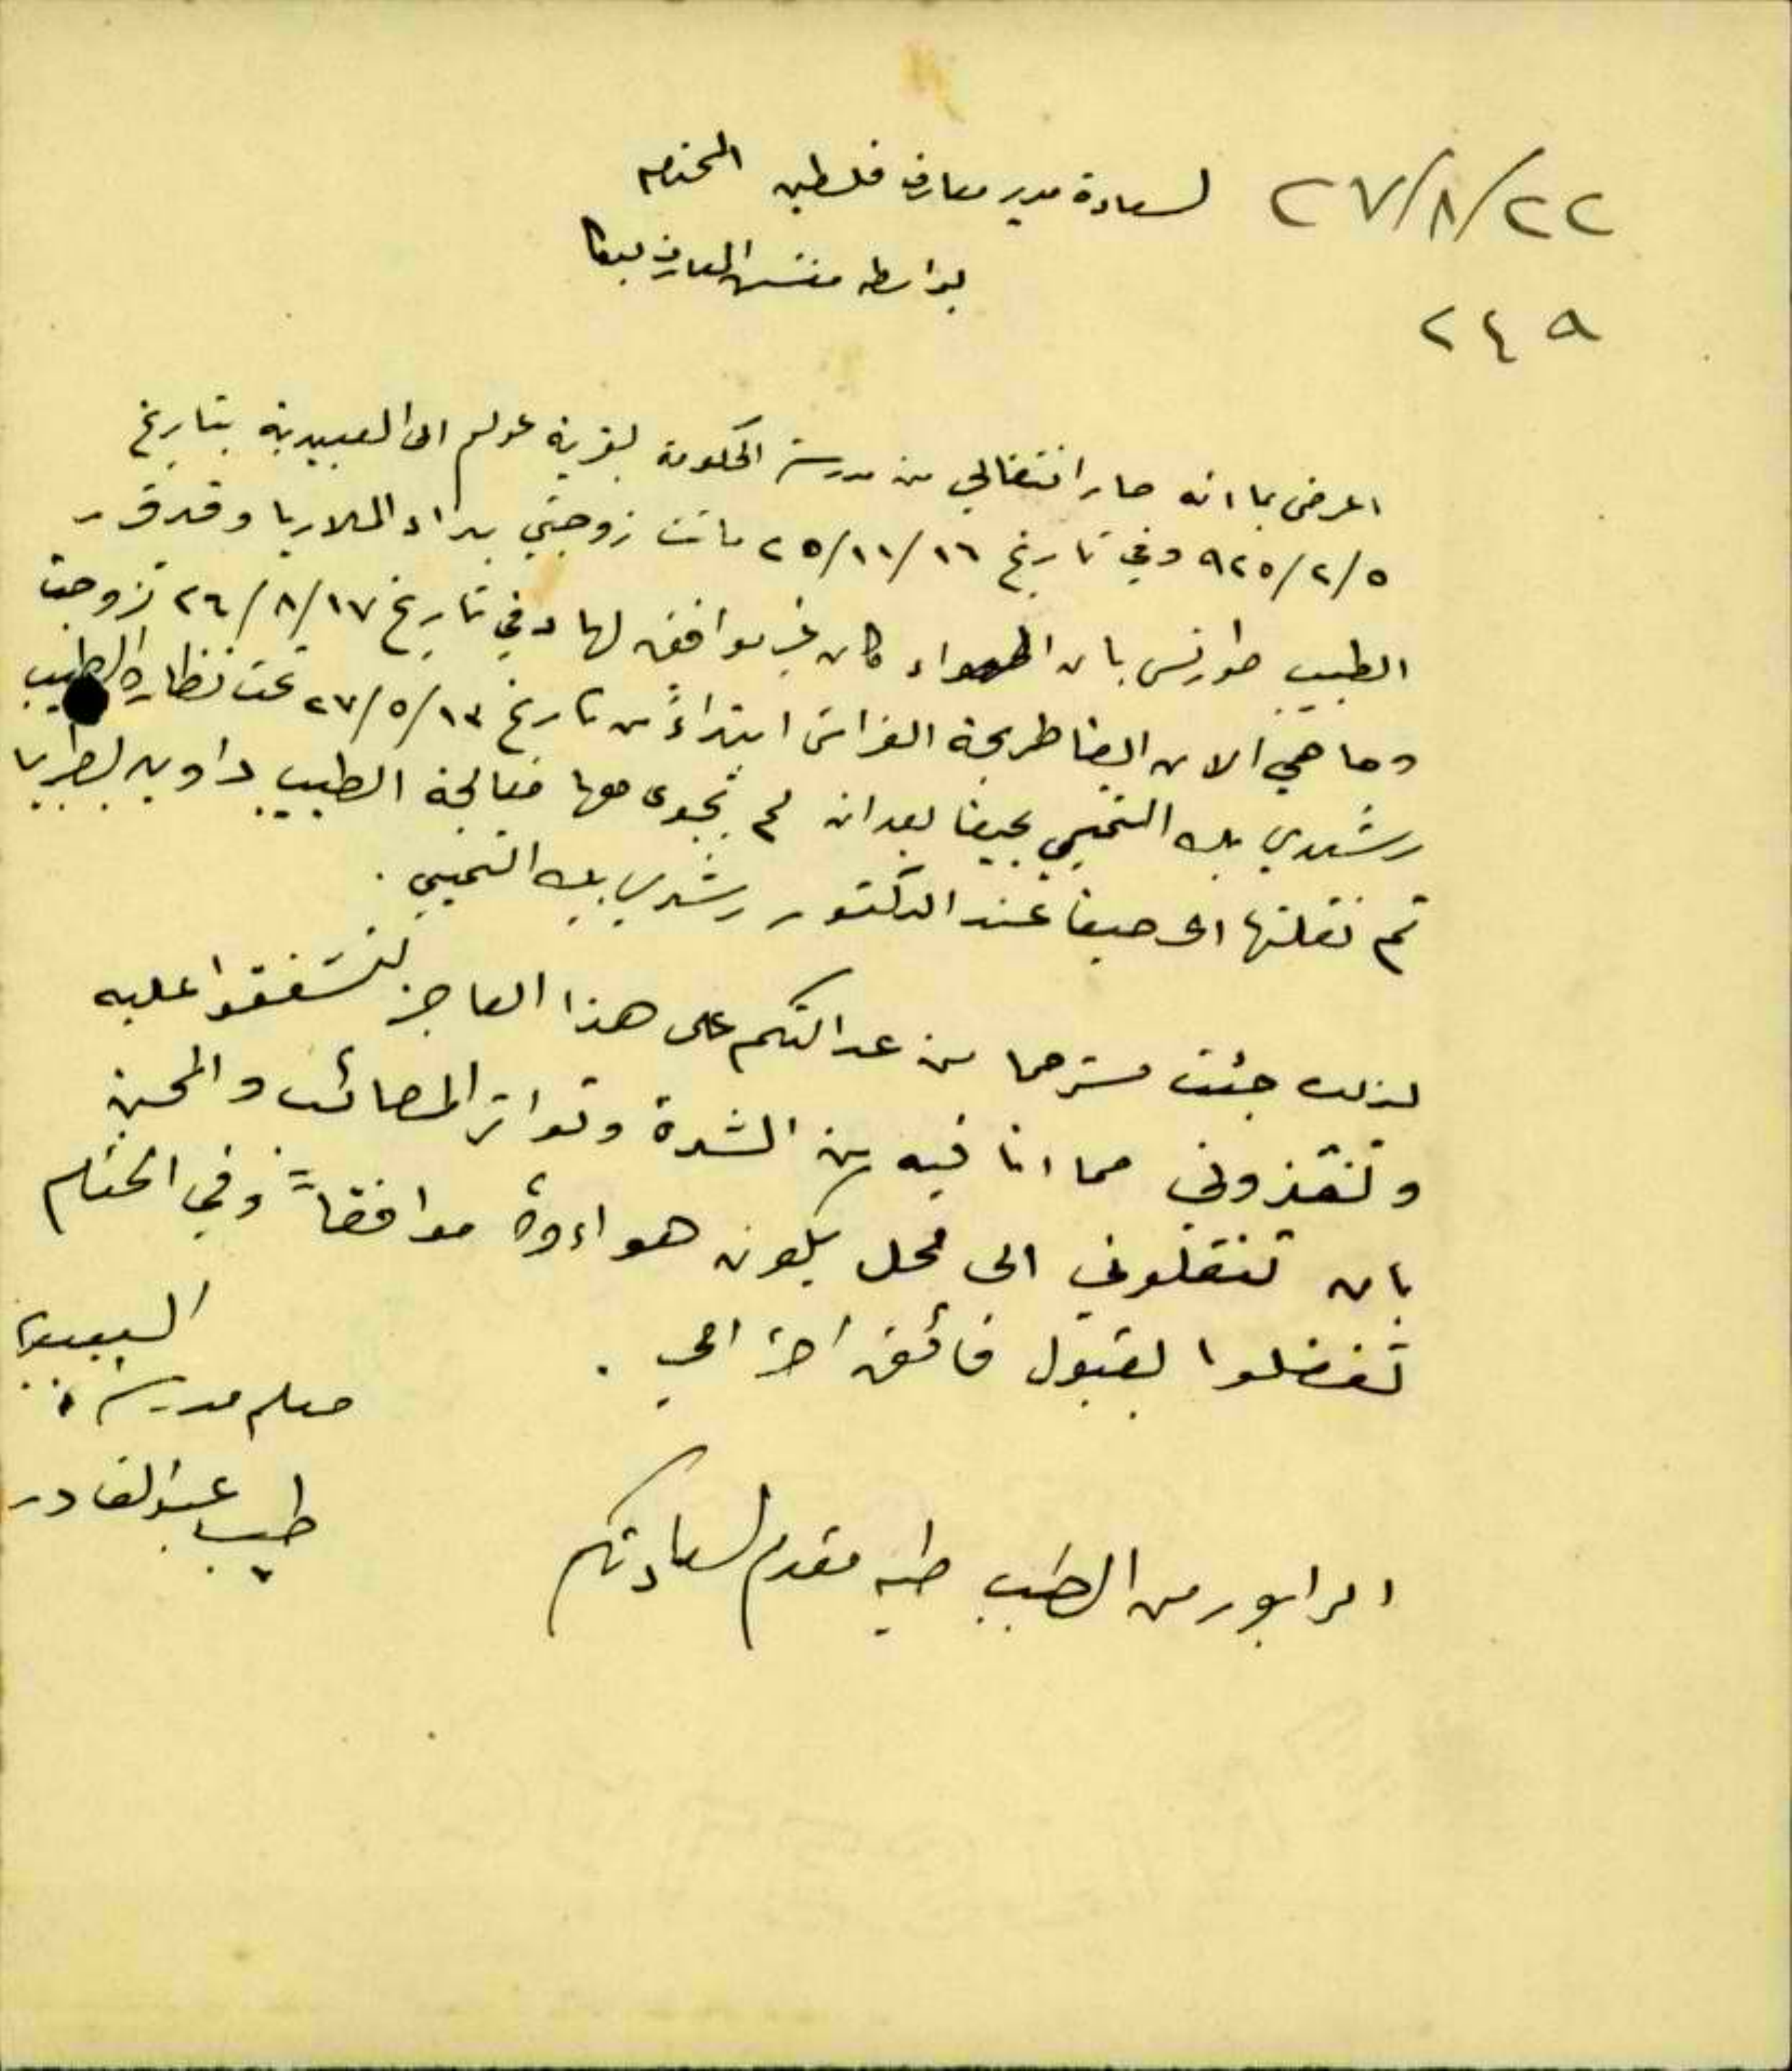 ٢٧/٨/٢٢
٢٤٩
لسعادة مدير معارف فلسطين المحترم
بواسطة مفتش المعارف بيفا
اعرض بما انه صار انتقالي من مدرسة الحكومة بقرية عولم الى العبيدية بتاريخ
٩٢٥/٢/٥ وفي تاريخ ٢٥/١١/١٦ ماتت زوجتي بداء الملاريا وقد قرر
الطبيب طورنس بان الهواء كان غير موافق لها وفي تاريخ ٢٦/٨/١٧ تزوجت
وها هي الان ايضا طريحة الفراش ابتداءً من تاريخ ٢٧/٥/١٣ تحت نظارة الطبيب
رشدي بك التميمي بحيفا بعد ان لم تجدى معها معالجة الطبيب داويد بطبريا
ثم نقلتها الى حيفا عند الدكتور رشدي بك التميمي .
لذلك جئت مسترحما من عدالتكم على هذا العاجز لتشفقوا عليه
وتنقذوني مما انا فيه من الشدة وتواتر المصائب والمحن
بان تنقلوني الى محل يكون هواءوهُ موافقاً وفي الختام
تفضلوا بقبول فائق احترامي .
معلم مدرسة العبيدية
طيب عبد القادر
الرابور من الطبيب طيه مقدم لسعادتكم